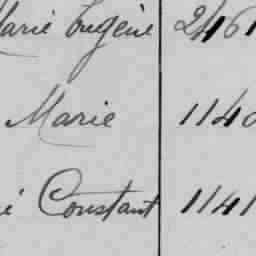 Marie Eugène 2461
Marie 1140
é Constant 1141